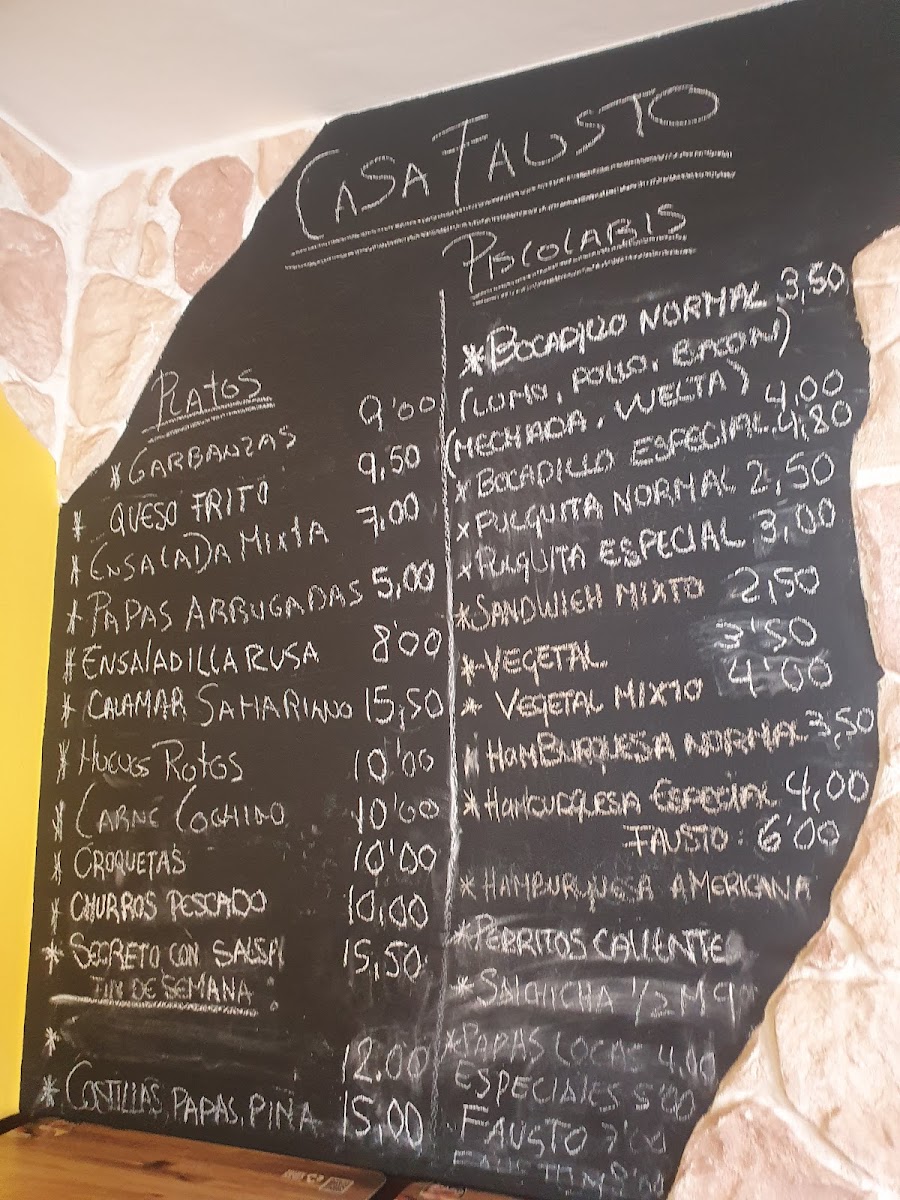 CASA FAUSTO
PLATOS
* GARBANZAS 9'00
* QUESO FRITO 9,50
* ENSALADA MIXTA 7,00
* PAPAS ARRUGADAS 5,00
* ENSALADILLA RUSA 8'00
* CALAMAR SAHARIANO 15,50
* HUEVOS ROTOS 10'00
* CARNE COCHINO 10'00
* CROQUETAS 10'00
* CHURROS PESCADO 10,00
* SECRETO CON SALSA 15,50
FIN DE SEMANA :
* 12.00
* COSTILLAS, PAPAS, PIÑA 15,00
PISCOLABIS
* BOCADILLO NORMAL 3,50
(LOMO, POLLO, BACON)
(MECHADA, VUELTA) 4,00
* BOCADILLO ESPECIAL 4,80
* PULGUITA NORMAL 2,50
* PULGUITA ESPECIAL 3,00
* SANDWICH MIXTO 2,50
* VEGETAL 3'50
* VEGETAL MIXTO 4'00
* HAMBURGUESA NORMAL 3,50
* HAMBURGUESA ESPECIAL 4,00
FAUSTO : 6'00
* HAMBURGUESA AMERICANA
* PERRITOS CALIENTE
* SALCHICHA 1/2 M
* PAPAS LOCAS 4,00
ESPECIALES 5'00
FAUSTO 7'00